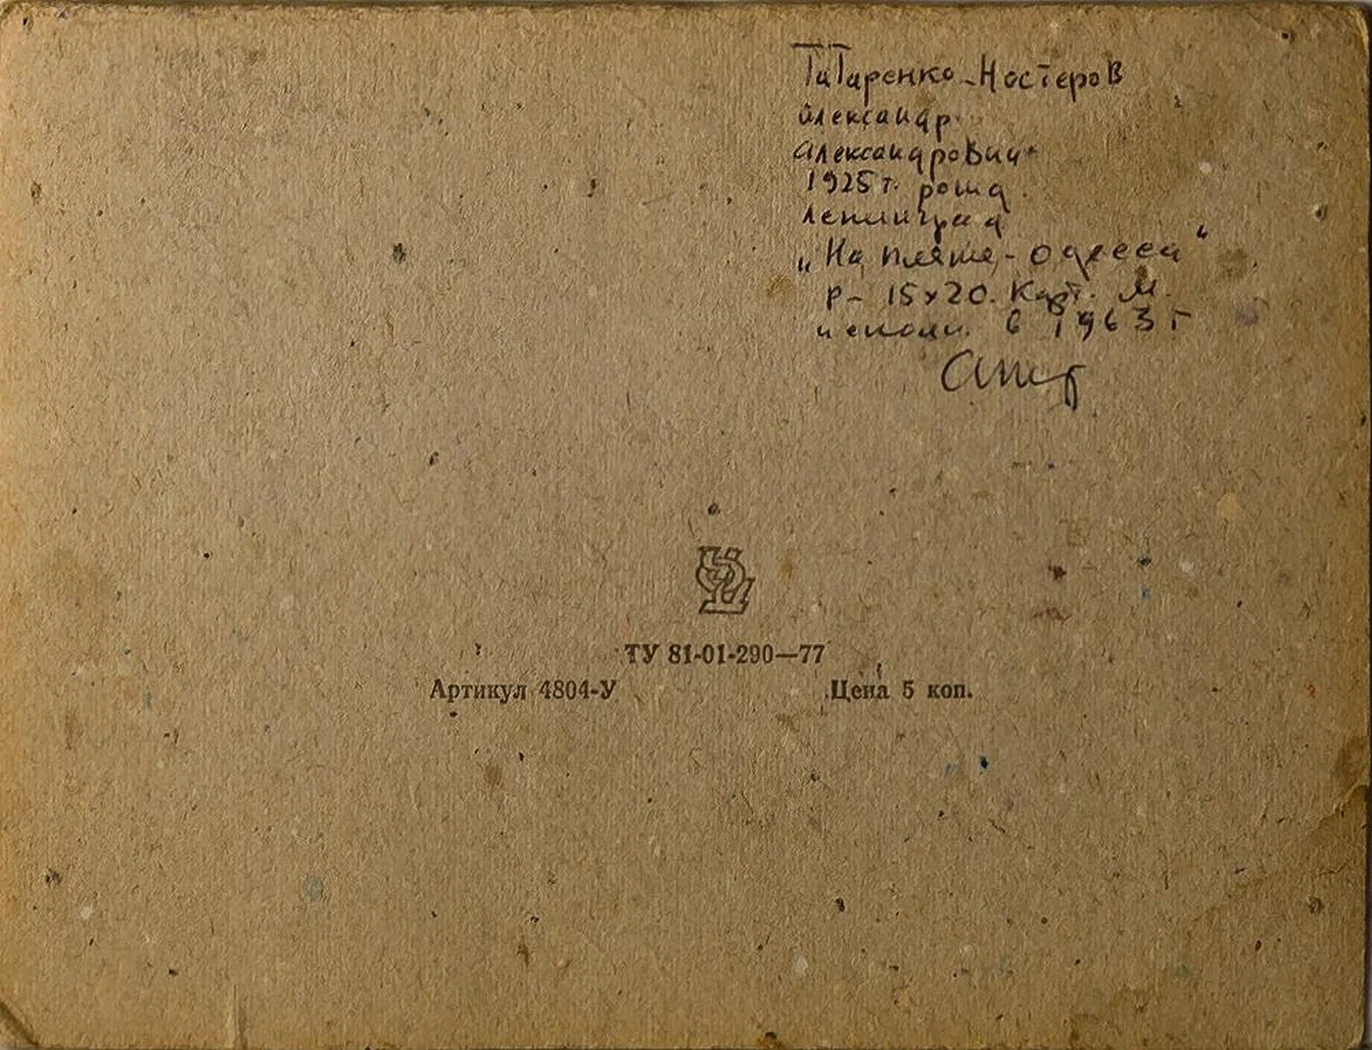 Татаренко-Нестеров
Александр
Александрович
1925 г. рожд
Ленинград
„На пляже - Одесса"
р- 15х20. Карт. М.
исполн. в 1963 г
ТУ 81-01-290—77
Артикул 4804-У Цена 5 коп.